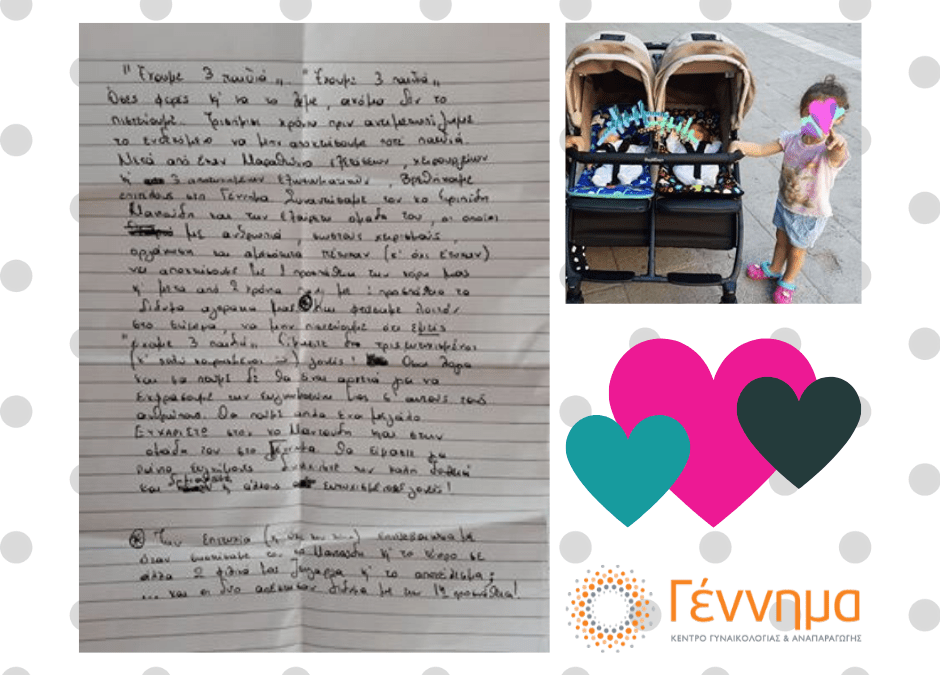 "Έχουμε 3 παιδιά„ "Έχουμε 3 παιδιά„
Όσες φορές κι να το λέμε, ακόμα δεν το
πιστεύουμε. Τρισήμισι χρόνια πριν αντιμετωπίζαμε
το ενδεχόμενο να μην αποκτήσουμε ποτέ παιδιά.
Μετά από έναν Μαραθώνιο εξετάσεων, χειρουργείων
κι 3 αποτυχημένων εξωσωματικών, βρεθήκαμε
επιτέλους στο Γέννημα Συναντήσαμε τον κο Ευριπίδη
Μαντούδη και την εξαίρετη ομάδα του, οι οποίοι
με ανθρωπιά, σωστούς χειρισμούς,
οργάνωση και πέτυχαν (κ' ότι έτυχαν)
να αποκτήσουμε με 1 προσπάθεια την κόρη μας
κι μετά από 2 χρόνια πάλι με 1 προσπάθεια τα
δίδυμα αγοράκια μας. Και φτάσαμε λοιπόν
στο σήμερα, να μην πιστεύουμε ότι εμείς
"έχουμε 3 παιδιά„. Είμαστε δυο τρισευτυχισμένοι
(κ' πολύ κουρασμένοι) γονείς! Όσα λόγια
και να πούμε δε θα είναι αρκετά για να
εκφράσουμε την ευγνωμοσύνη μας σ' αυτούς τους
ανθρώπους. Θα πούμε απλά ένα μεγάλο
ΕΥΧΑΡΙΣΤΩ στον κο Μαντούδη και στην
ομάδα του στο Γέννημα. Θα είμαστε για
πάντα ευγνώμονες. Συνεχίστε την καλή δουλειά
και κι άλλους ευτυχισμένους γονείς!
Την επιτυχία
όταν συστήσαμε τον κο Μαντούδη κι το κέντρο σε
άλλα 2 φιλικά μας ζευγάρια κι το αποτέλεσμα;
... και οι δύο απέκτησαν δίδυμα με την 1η προσπάθεια!
Γέννημα
ΚΕΝΤΡΟ ΓΥΝΑΙΚΟΛΟΓΙΑΣ & ΑΝΑΠΑΡΑΓΩΓΗΣ